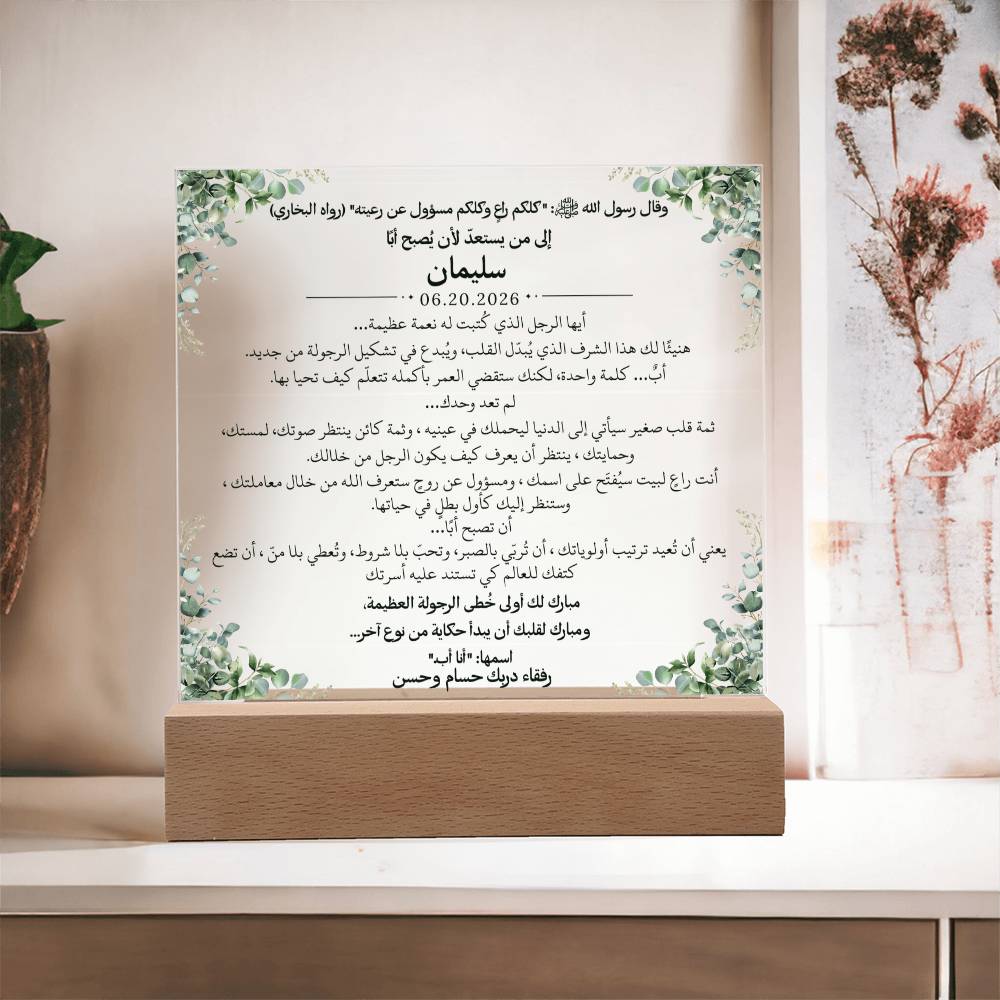 وقال رسول الله ﷺ: "كلكم راعٍ وكلكم مسؤول عن رعيته" (رواه البخاري)
إلى من يستعدّ لأن يُصبح أبًا
سليمان
06.20.2026
أيها الرجل الذي كُتبت له نعمة عظيمة...
هنيئًا لك هذا الشرف الذي يُبدّل القلب، ويُبدع في تشكيل الرجولة من جديد.
أبٌ... كلمة واحدة، لكنك ستقضي العمر بأكمله تتعلّم كيف تحيا بها.
لم تعد وحدك...
ثمة قلب صغير سيأتي إلى الدنيا ليحملك في عينيه ، وثمة كائن ينتظر صوتك، لمستك،
وحمايتك ، ينتظر أن يعرف كيف يكون الرجل من خلالك.
أنت راعٍ لبيت سيُفتَح على اسمك ، ومسؤول عن روحٍ ستعرف الله من خلال معاملتك ،
وستنظر إليك كأول بطلٍ في حياتها.
أن تصبح أبًا...
يعني أن تُعيد ترتيب أولوياتك ، أن تُربّي بالصبر، وتحبّ بلا شروط، وتُعطي بلا منّ ، أن تضع
كتفك للعالم كي تستند عليه أسرتك
مبارك لك أولى خُطى الرجولة العظيمة،
ومبارك لقلبك أن يبدأ حكاية من نوع آخر...
اسمها: "أنا أب."
رفقاء دربك حسام وحسن